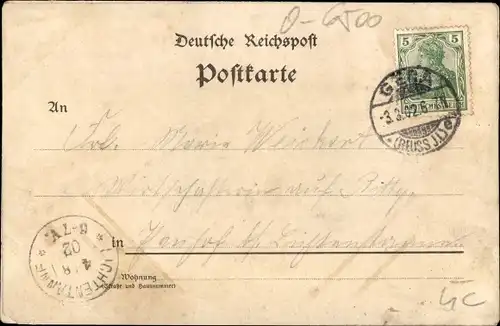 0-6500
Deutsche Reichspost
Postkarte
5 5
GERA
3.3.02.6-7N
* (REUSS J.L.) c
An
Frl. Marie Weickert
Wirthschafterin auf Rittg.
in
6-7V.
02
4 3
* LICHTENTANNE *
Wohnung
(Straße und Hausnummer)